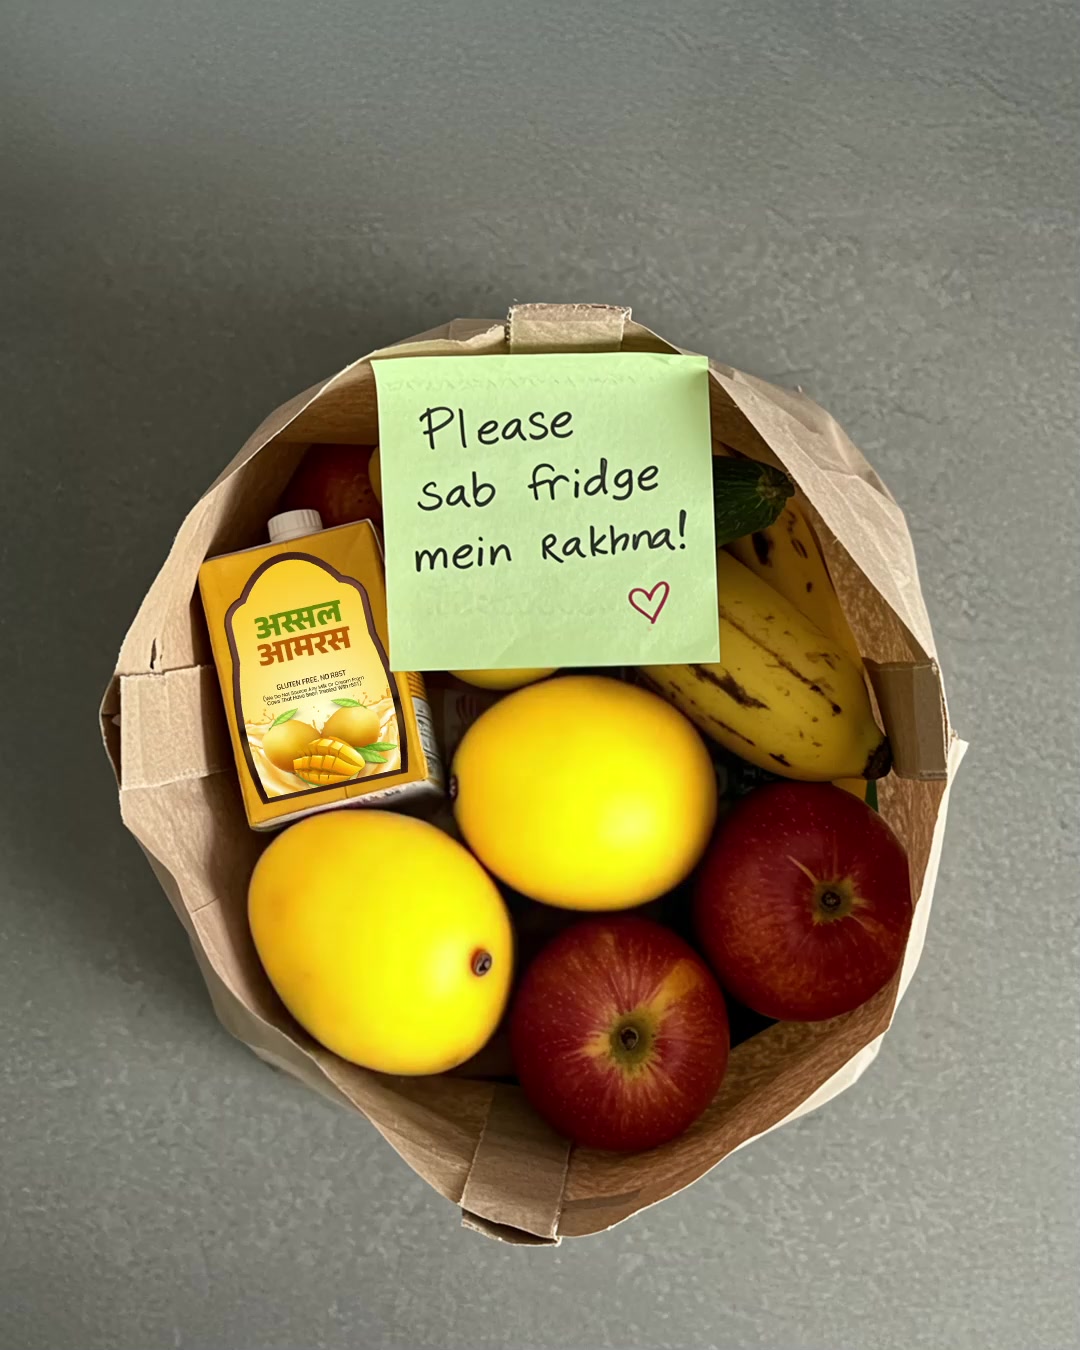 Please
sab fridge
mein Rakhna!
अस्सल
आमरस
GLUTEN FREE, NO RBST
(We Do Not Source Any Milk Or Cream From
Cows That Have Been Treated With rBST)